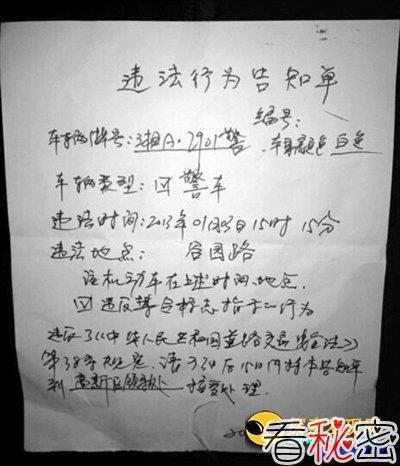 违法行为告知单
编号:
车辆牌号:湘A·2901警 车身颜色 白色
车辆类型: 警车
违法时间:2013年01月03日15时15分
违法地点: 谷园路
该机动车在上述时间、地点,
违反禁令标志指示的行为
违反了《中华人民共和国道路交通安全法》
第38条规定,请于3日后15日内持本告知单
到 接受处理.
看秘密